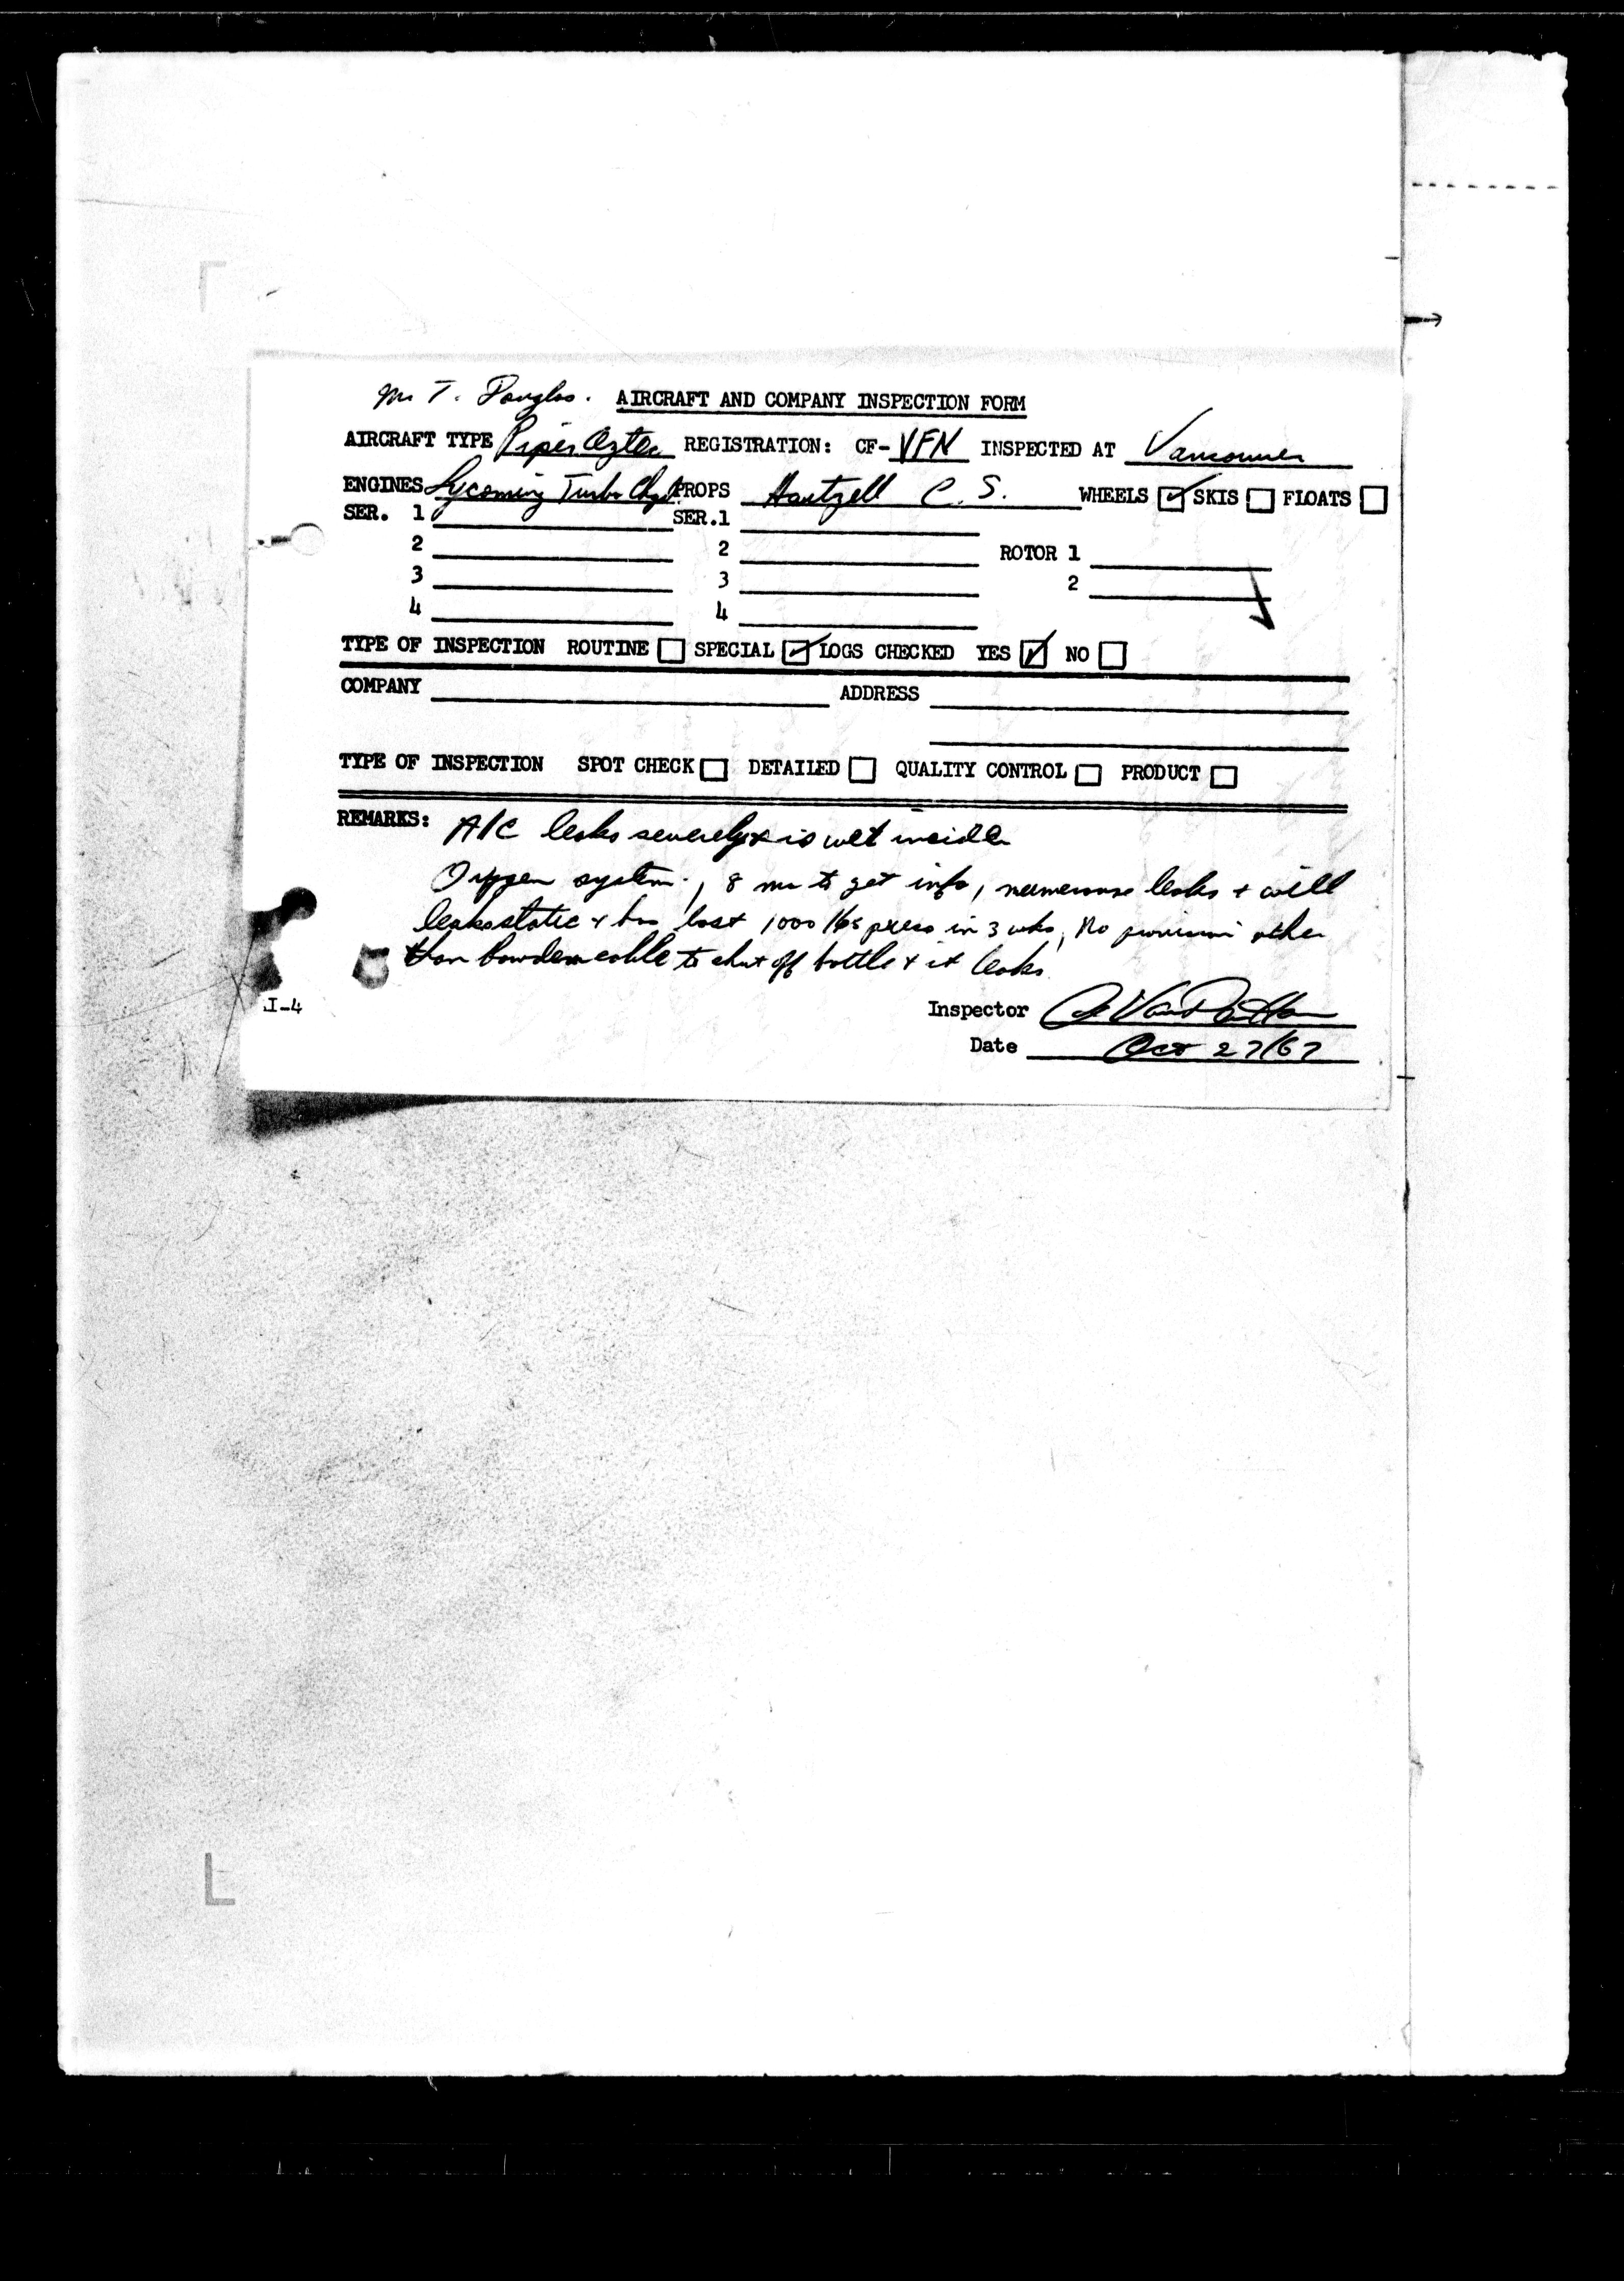 Mr T. Douglas. AIRCRAFT AND COMPANY INSPECTION FORM
AIRCRAFT TYPE Piper Aztec REGISTRATION: CF-VFN INSPECTED AT Vancouver
ENGINES Lycoming Turbo PROPS Hartzell C. S. WHEELS SKIS FLOATS
SER. 1 SER.1
2 2 ROTOR 1
3 3 2
4 4
TYPE OF INSPECTION ROUTINE SPECIAL LOGS CHECKED YES NO
COMPANY ADDRESS
TYPE OF INSPECTION SPOT CHECK DETAILED QUALITY CONTROL PRODUCT
REMARKS: A/C leaks severely & is wet inside
Oxygen system, 8 to get info, numerous leaks + will
leak static & has lost 1000 lbs press in 3 wks, No provision other
than bowden cable to shut off bottle & it leaks.
I-4
Inspector
Date Oct 27/67
L